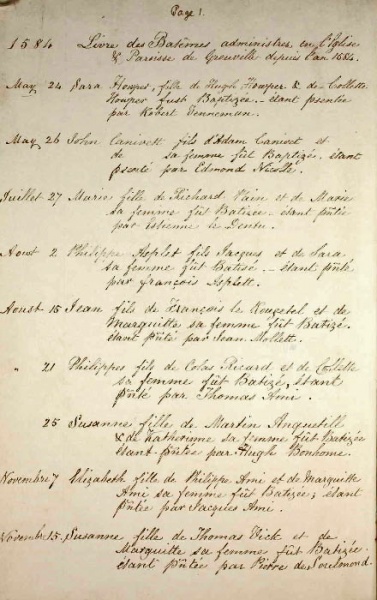 Page 1.
1584 Livre des Batêmes administres en l'Eglise
& Paroisse de Grouville depuis l'an 1584.
May 24 Sara Houper, fille de Hugh Houper & de Collette
Houper fust Baptizée. étant psentée
par Robert Fenneman.
May 26 John Canivett fils d'Adam Canivet et
de sa femme fût Baptizé, étant
psenté par Edmond Nicolle.
Juillet 27 Marie fille de Richard et de Marie
sa femme fût Batizee. étant pñtée
par Estienne le Dentu.
Aoust 2 Philippe Asplet fils Jacques et de Sara
sa femme fût Batisé. étant pñté
par François Asplett.
Aoust 15 Jean fils de François le Rougetel et de
Marguitte sa femme fût Batizé.
étant pñté par Jean Mollett.
" 21 Philippes fils de Colas Ricard et de Collette
sa femme fût Batizé, étant
pñté par Thomas Ami.
25 Susanne fille de Martin Anquetill
& de Katherinne sa femme fût Batizée
étant pñtée par Hugh Bonhome.
Novembre 7 Elizabeth fille de Philippe Ami et de Marguitte
Ami sa femme fût Batizée; étant
pñtée par Jacques Ami.
Novembre 15. Susanne fille de Thomas Fick et de
Marguitte sa femme fût Batizée.
étant pñtée par Pierre de Soulmond.